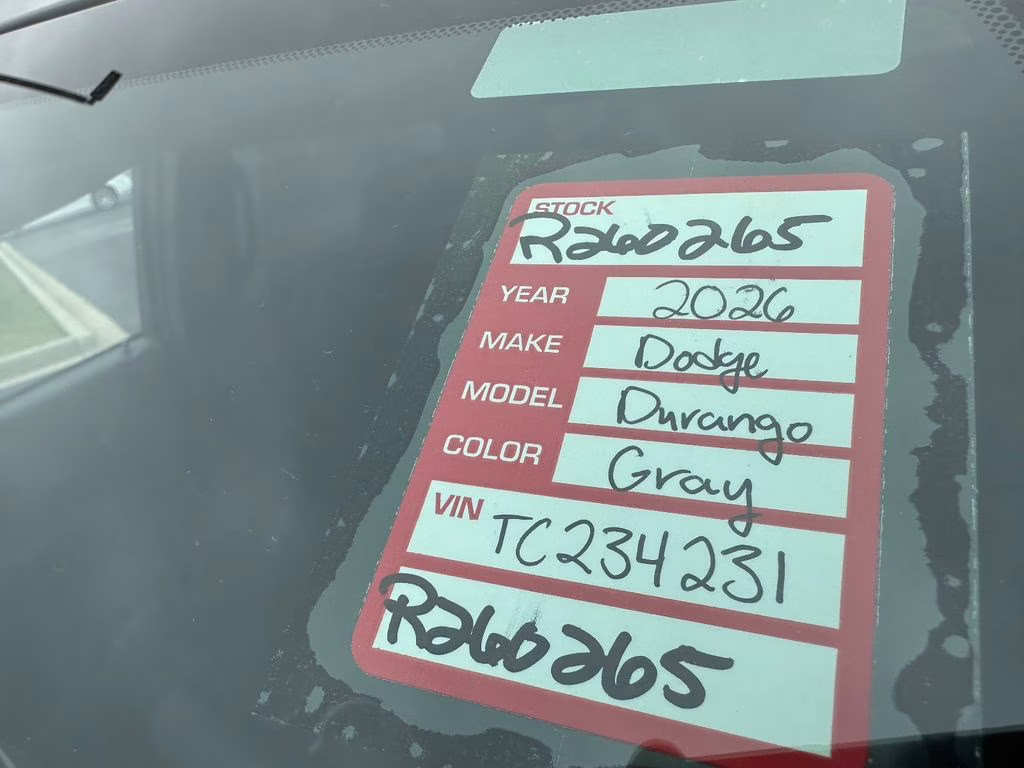 STOCK
R260265
YEAR 2026
MAKE Dodge
MODEL Durango
COLOR Gray
VIN TC234231
R260265